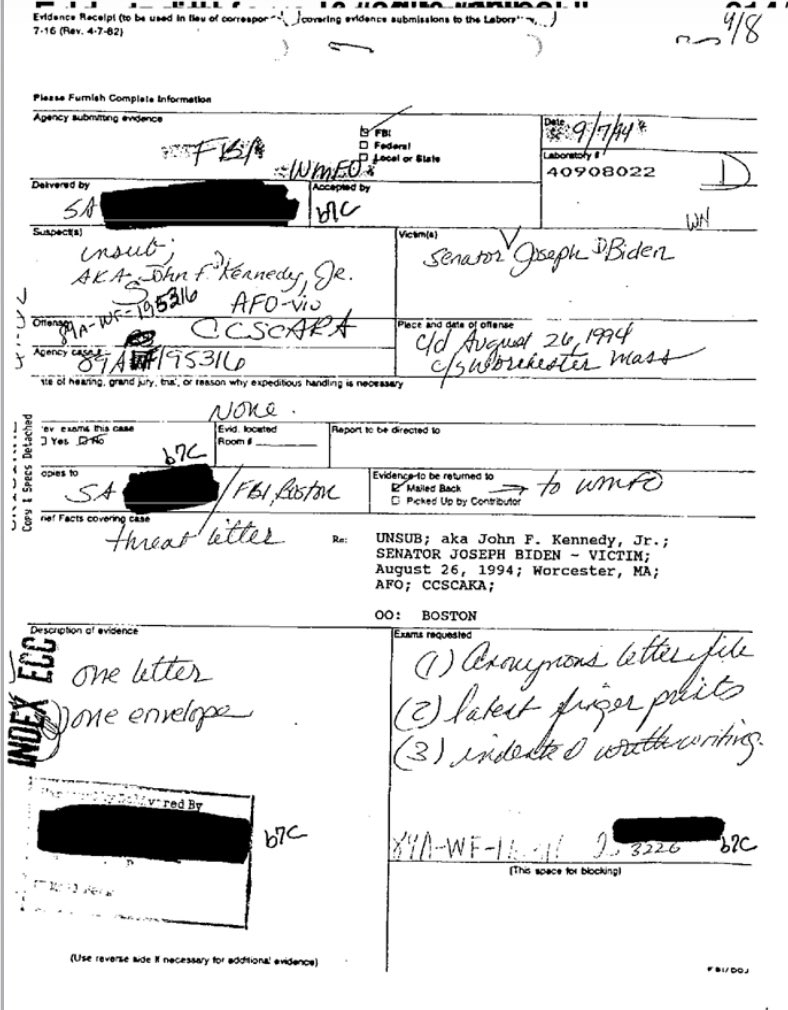 Evidence Receipt (to be used in lieu of covering evidence submissions to the
7-16 (Rev. 4-7-82)
9/8
Please Furnish Complete Information
Agency submitting evidence
FBI
WMFO
FBI
Federal
Local or State
Date
9/7/94
Laboratory #
40908022
D
WN
Delivered by
SA
Accepted by
b7C
Suspect(s)
unsub;
AKA John F. Kennedy, Jr.
89A-WF-195316
AFO-
Victim(s)
Senator Joseph Biden
Offense
CCSCAKA
Place and date of offense
c/d August 26, 1994
Worchester Mass
Agency case #
89A WF 195316
te of hearing, grand jury, trial, or reason why expeditious handling is necessary
None.
ev. exams this case
Yes No
b7C
Evid. located
Room #
Report to be directed to
Copy & Specs Detached
opies to
SA /FBI, Boston
Evidence to be returned to
Mailed Back → to WMFO
Picked Up by Contributor
rief Facts covering case
threat letter
Re: UNSUB; aka John F. Kennedy, Jr.;
SENATOR JOSEPH BIDEN - VICTIM;
August 26, 1994; Worcester, MA;
AFO; CCSCAKA;
OO: BOSTON
Description of evidence
one letter
one envelope
INDEX ECC
Exams requested
(1) Anonymous letter file
(2) latent finger prints
(3) indented writing.
Delivered By
b7C
89A-WF-
3226 b7C
(This space for blocking)
(Use reverse side if necessary for additional evidence)
FBI/DOJ